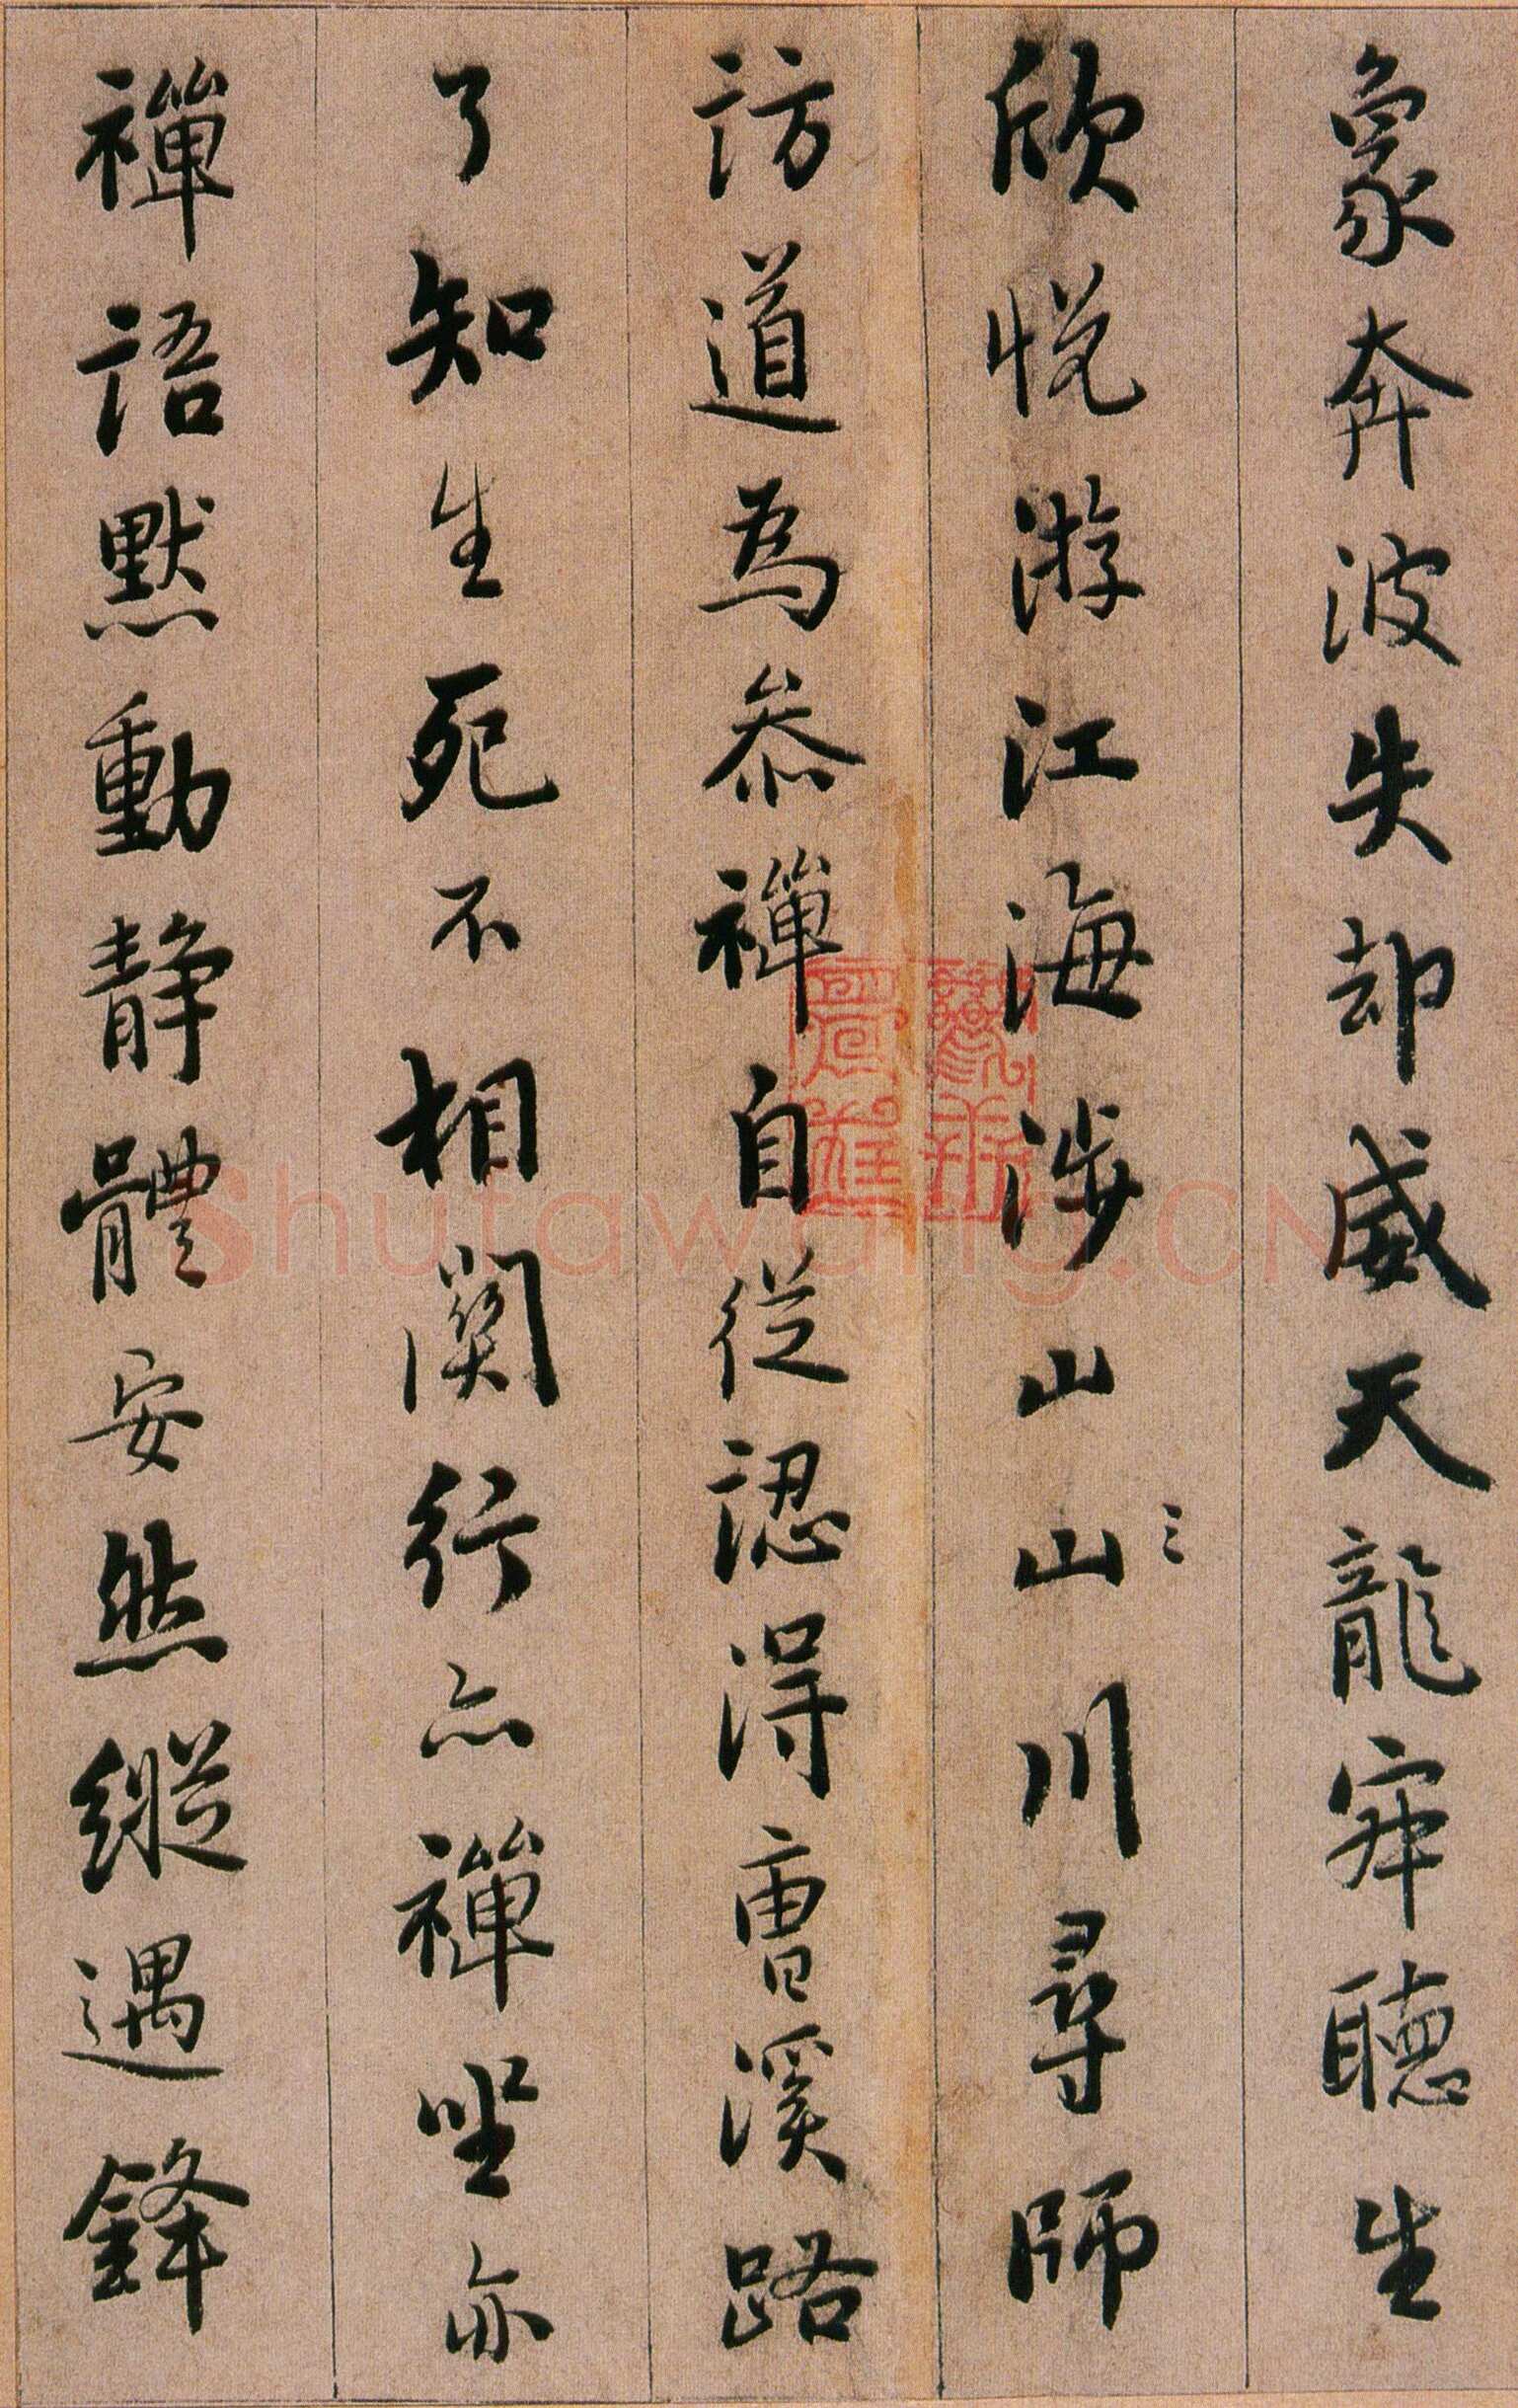 象奔波失却威天龍寂聽生
欣悦游江海涉山山川尋師
訪道為叅禪自從認得曹溪路
了知生死不相関行亦禪坐亦
禪語默動静體安然縱遇鋒
Shufawang.CN